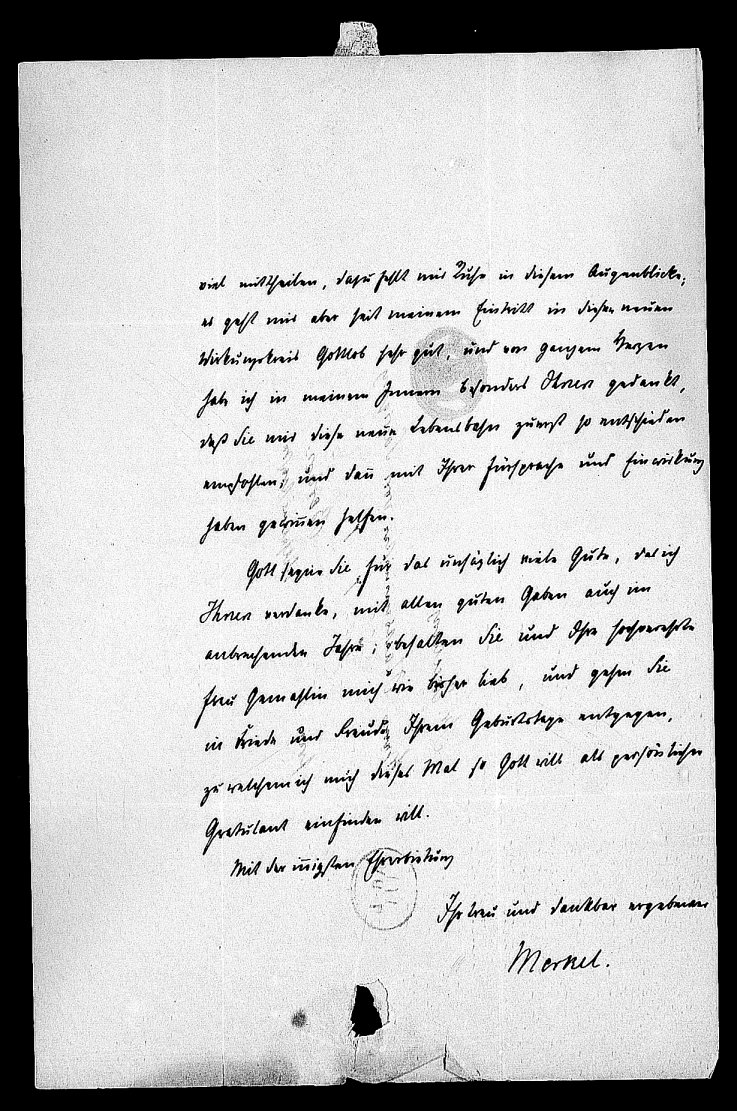 viel mittheilen, dazu fehlt mir Ruhe in diesem Augenblicke;
es geht mir aber seit meinem Eintritt in diesen neuen
Wirkungskreis Gottlob sehr gut, und von ganzem Herzen
habe ich in meinem Innern besonders Ihnen gedankt,
daß Sie mir diese neue Lebensbahn zuerst so entschieden
empfohlen, und dan̄ mit Ihrer Fürsprache und Einwirkung
haben gewin̄en helfen.
Gott segne Sie für das unsäglich viele Gute, das ich
Ihnen verdanke, mit allen guten Gaben auch im
anbrechenden Jahre; behalten Sie und Ihre hochverehrte
Frau Gemahlin mich wie bisher lieb, und gehen Sie
in Friede und Freude Ihrem Geburtstage entgegen,
zu welchem ich mich dieses Mal so Gott will als persönlicher
Gratulant einfinden will.
Mit der in̄igsten Ehrerbietung
Ihr treu und dankbar ergebener
Merkel.